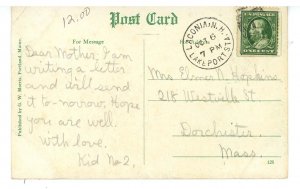 12.00
Post Card
For Message
LACONIA, N.H.
OCT 6
7 PM
LAKEPORT STA.
Dear Mother, I am
writing a letter
and will send
it to-morrow. Hope
you are well.
With love,
Kid No 2.
Mrs N. Hopkins,
218 Westville St
Dorchester
Mass.
Published by G. W. Morris, Portland, Maine.